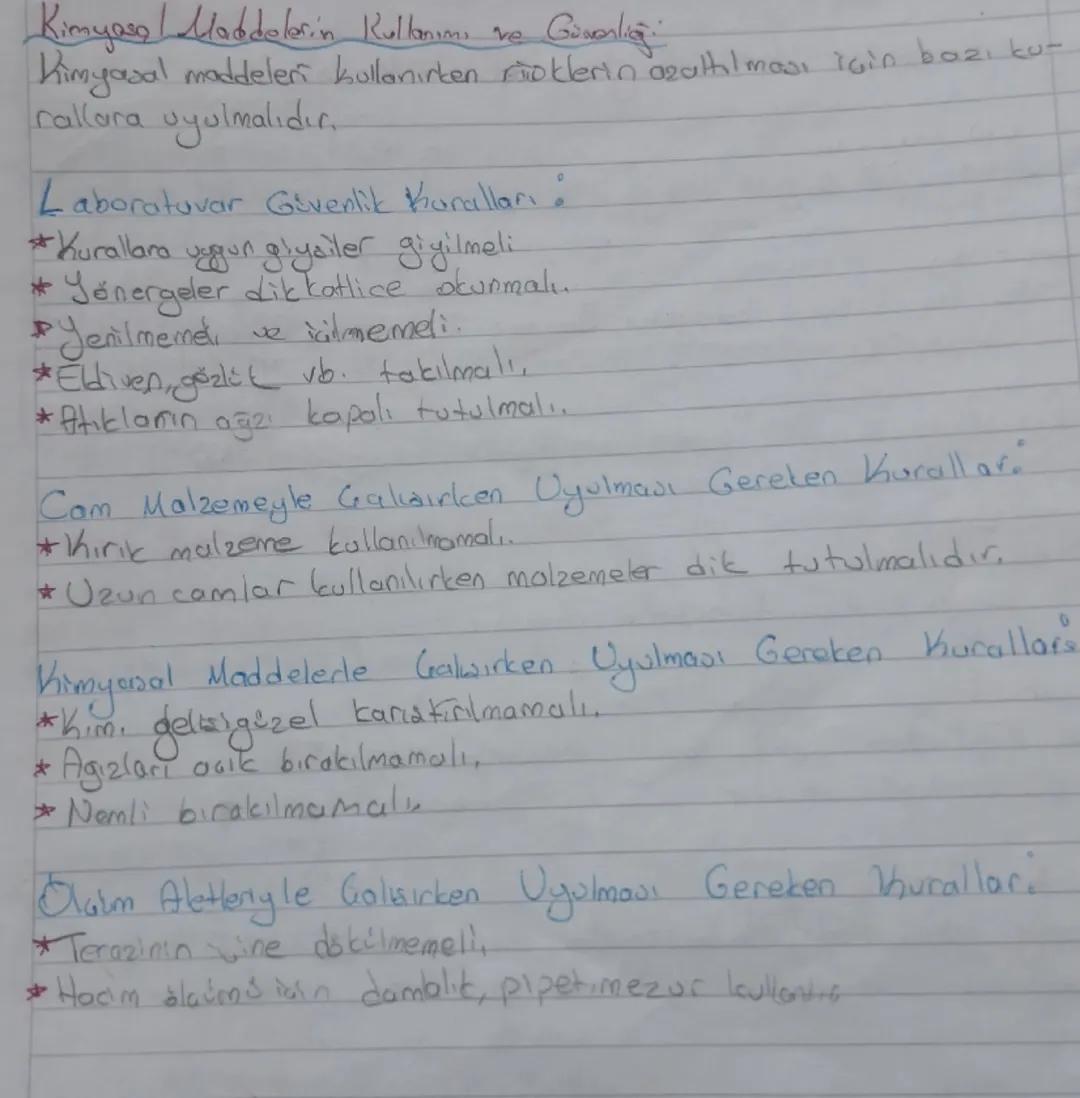 Kimyasal Maddelerin Kullanımı ve Güvenliği:
Kimyasal maddeleri kullanırken risklerin azaltılması için bazı ku-
rallara uyulmalıdır.
Laboratuvar Güvenlik Kuralları:
* Kurallara uygun giysiler giyilmeli
* Yönergeler dikkatlice okunmalı.
* Yenilmemeli ve içilmemeli.
* Eldiven, gözlük vb. takılmalı.
* Atıkların ağzı kapalı tutulmalı.
Cam Malzemeyle Çalışırken Uyulması Gereken Kurallar:
* Kırık malzeme kullanılmamalı.
* Uzun camlar kullanılırken malzemeler dik tutulmalıdır.
Kimyasal Maddelerle Çalışırken Uyulması Gereken Kurallar:
* Kim. gelişigüzel karıştırılmamalı.
* Ağızları açık bırakılmamalı.
* Nemli bırakılmamalı.
Ölçüm Aletleriyle Çalışırken Uyulması Gereken Kurallar:
* Terazinin üine dökülmemeli.
* Hacim ölçümü için damlalık, pipet, mezur kullanılır